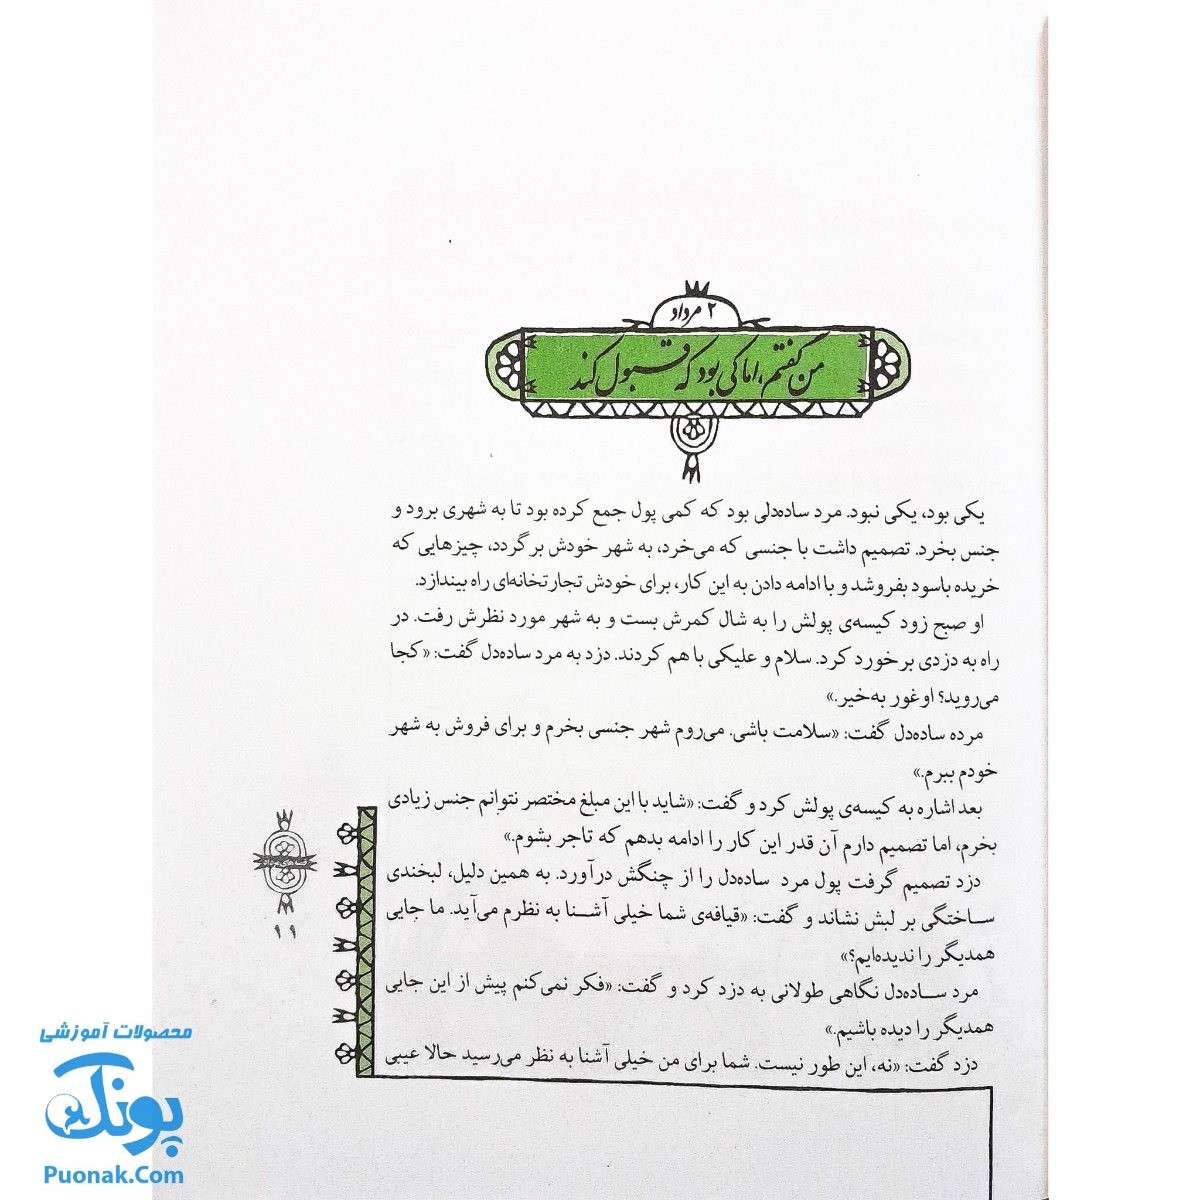 ۲ مرداد
من گفتم، اما کی بود که قبول کند
یکی بود، یکی نبود. مرد ساده‌دلی بود که کمی پول جمع کرده بود تا به شهری برود و
جنس بخرد. تصمیم داشت با جنسی که می‌خرد، به شهر خودش برگردد، چیزهایی که
خریده باسود بفروشد و با ادامه دادن به این کار، برای خودش تجارتخانه‌ای راه بیندازد.
او صبح زود کیسه‌ی پولش را به شال کمرش بست و به شهر مورد نظرش رفت. در
راه به دزدی برخورد کرد. سلام و علیکی با هم کردند. دزد به مرد ساده‌دل گفت: «کجا
می‌روید؟ اوغور به‌خیر.»
مرده ساده‌دل گفت: «سلامت باشی. می‌روم شهر جنسی بخرم و برای فروش به شهر
خودم ببرم.»
بعد اشاره به کیسه‌ی پولش کرد و گفت: «شاید با این مبلغ مختصر نتوانم جنس زیادی
بخرم، اما تصمیم دارم آن قدر این کار را ادامه بدهم که تاجر بشوم.»
دزد تصمیم گرفت پول مرد ساده‌دل را از چنگش درآورد. به همین دلیل، لبخندی
ساختگی بر لبش نشاند و گفت: «قیافه‌ی شما خیلی آشنا به نظرم می‌آید. ما جایی
همدیگر را ندیده‌ایم؟»
مرد ساده‌دل نگاهی طولانی به دزد کرد و گفت: «فکر نمی‌کنم پیش از این جایی
همدیگر را دیده باشیم.»
دزد گفت: «نه، این طور نیست. شما برای من خیلی آشنا به نظر می‌رسید حالا عیبی
۱۱
محصولات آموزشی
پونک
Puonak.Com